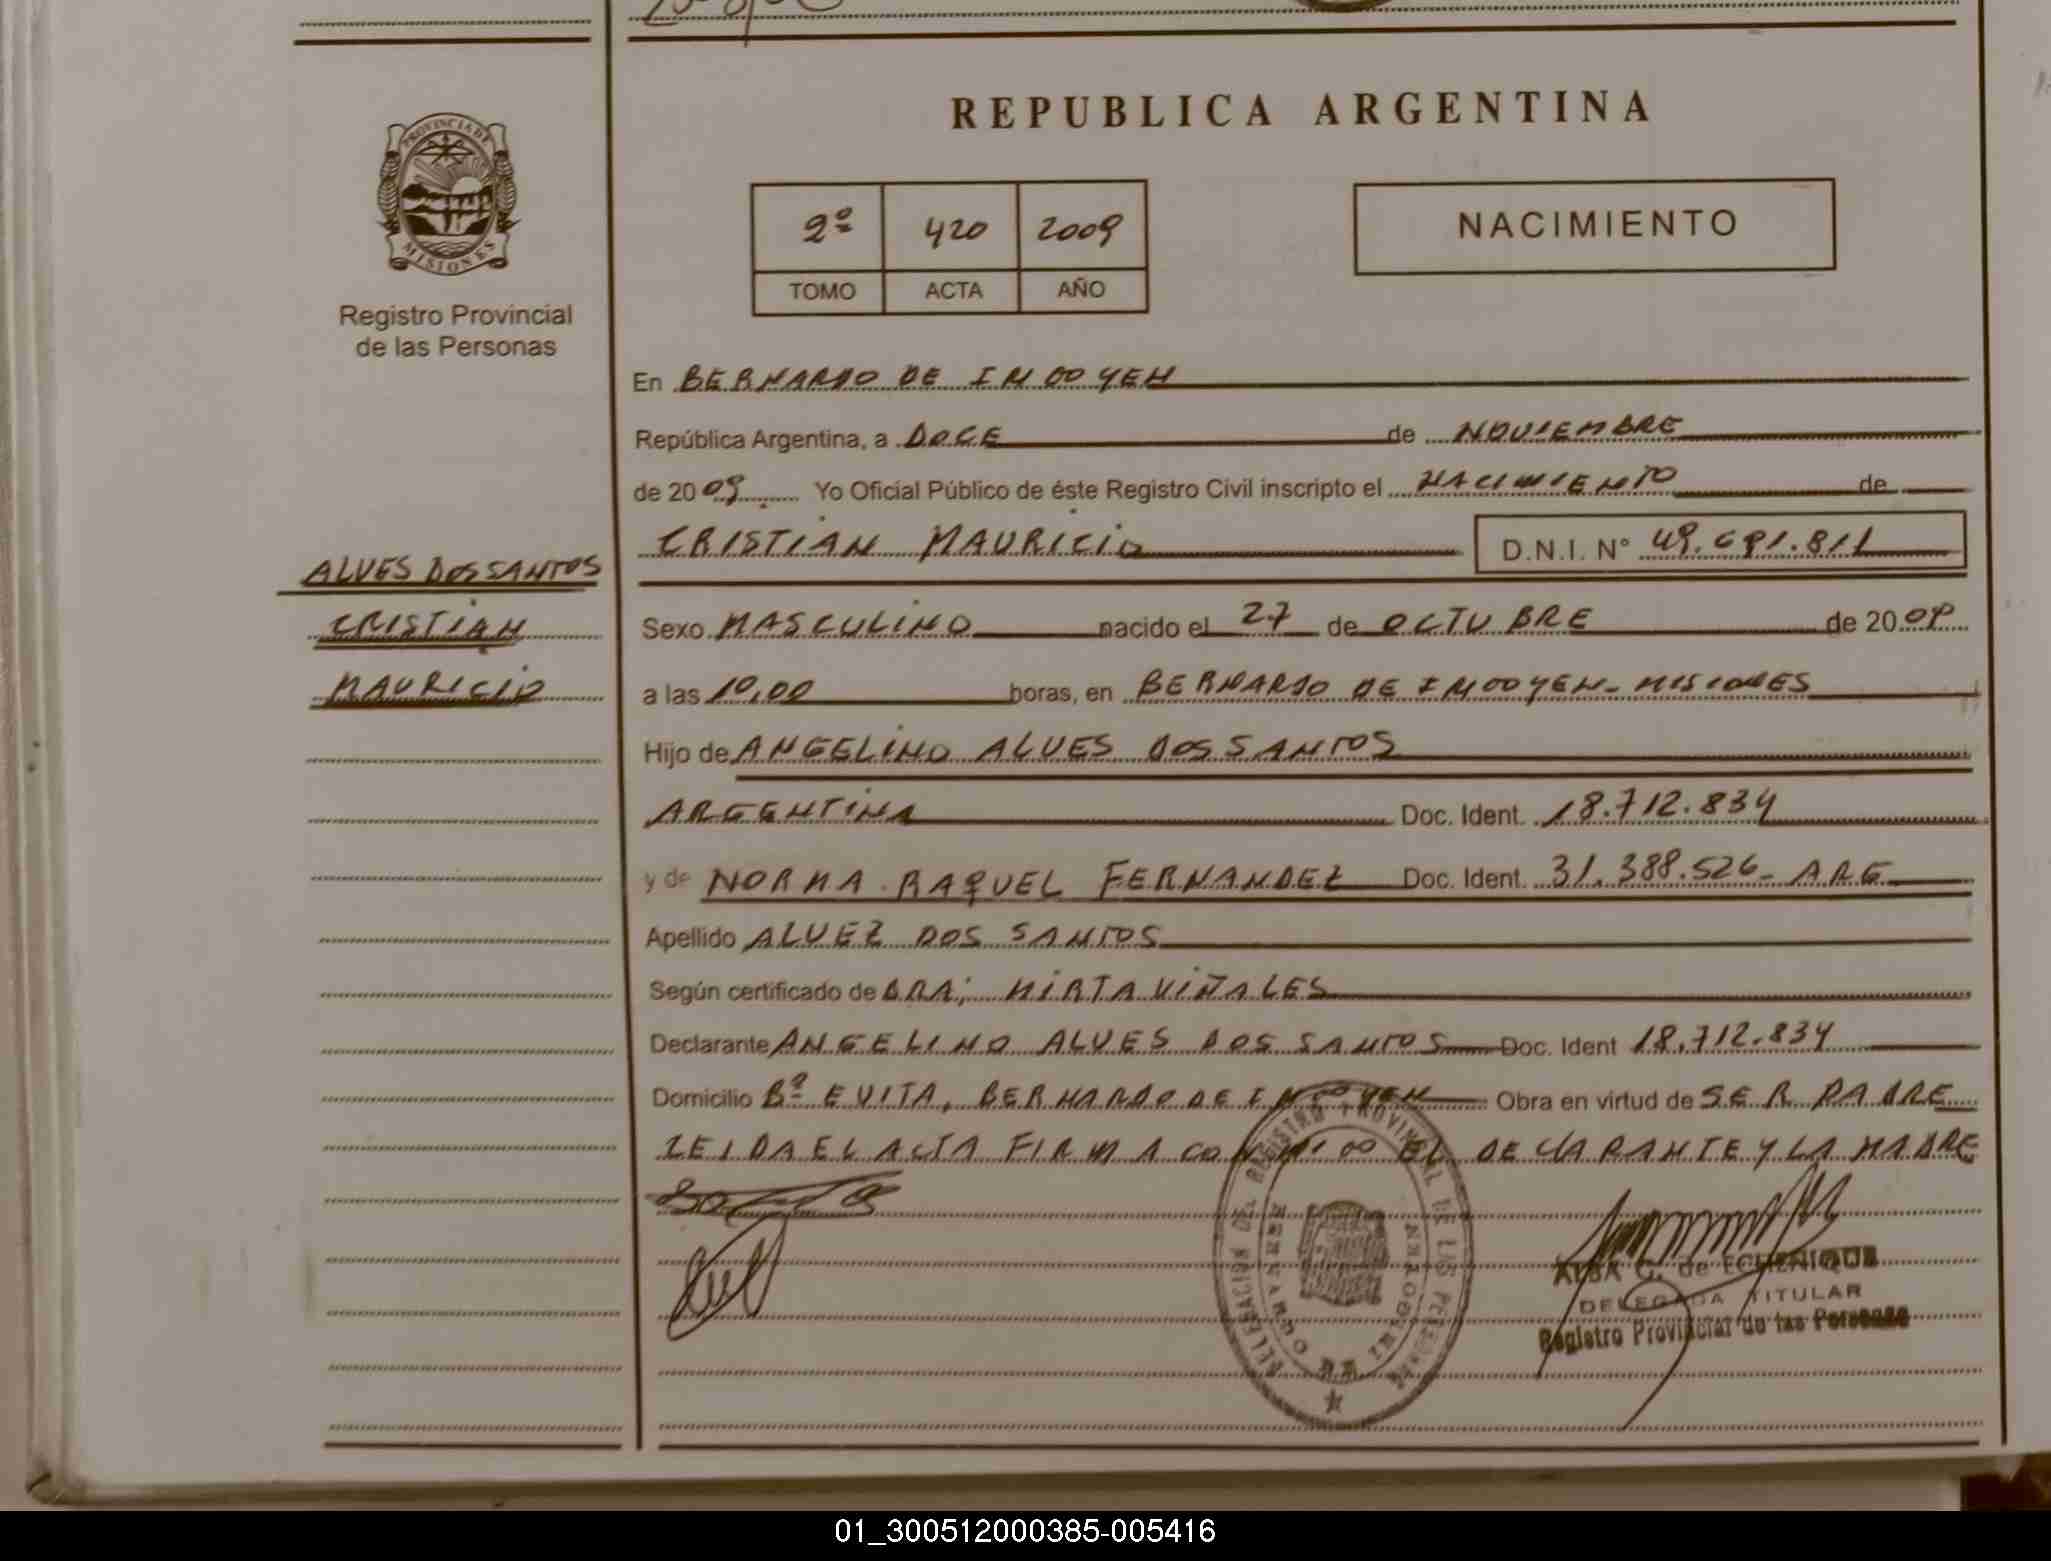 REPUBLICA ARGENTINA
PROVINCIA DE
MISIONES
Registro Provincial
de las Personas
2º 420 2009
TOMO ACTA AÑO
NACIMIENTO
En BERNARDO DE IRIGOYEN
República Argentina, a DOCE de NOVIEMBRE
de 2009 Yo Oficial Público de éste Registro Civil inscripto el NACIMIENTO de
CRISTIAN MAURICIO D.N.I. N° 49.691.811
ALVES DOS SANTOS
CRISTIAN
MAURICIO
Sexo MASCULINO nacido el 27 de OCTUBRE de 2009
a las 10,00 horas, en BERNARDO DE IRIGOYEN - MISIONES
Hijo de ANGELINO ALVES DOS SANTOS
ARGENTINA Doc. Ident. 18.712.834
y de NORMA RAQUEL FERNANDEZ Doc. Ident. 31.388.526 - ARG
Apellido ALVEZ DOS SANTOS
Según certificado de DRA; MIRTA VIÑALES
Declarante ANGELINO ALVES DOS SANTOS Doc. Ident 18.712.834
Domicilio Bº EVITA, BERNARDO DE IRIGOYEN Obra en virtud de SER PADRE
LEIDA EL ACTA FIRMA CONMIGO EL DECLARANTE Y LA MADRE
DELEGACION DEL REGISTRO PROVINCIAL DE LAS PERSONAS
BERNARDO DE IRIGOYEN
ALBA G. de ECHENIQUE
DELEGADA TITULAR
Registro Provincial de las Personas
01_300512000385-005416